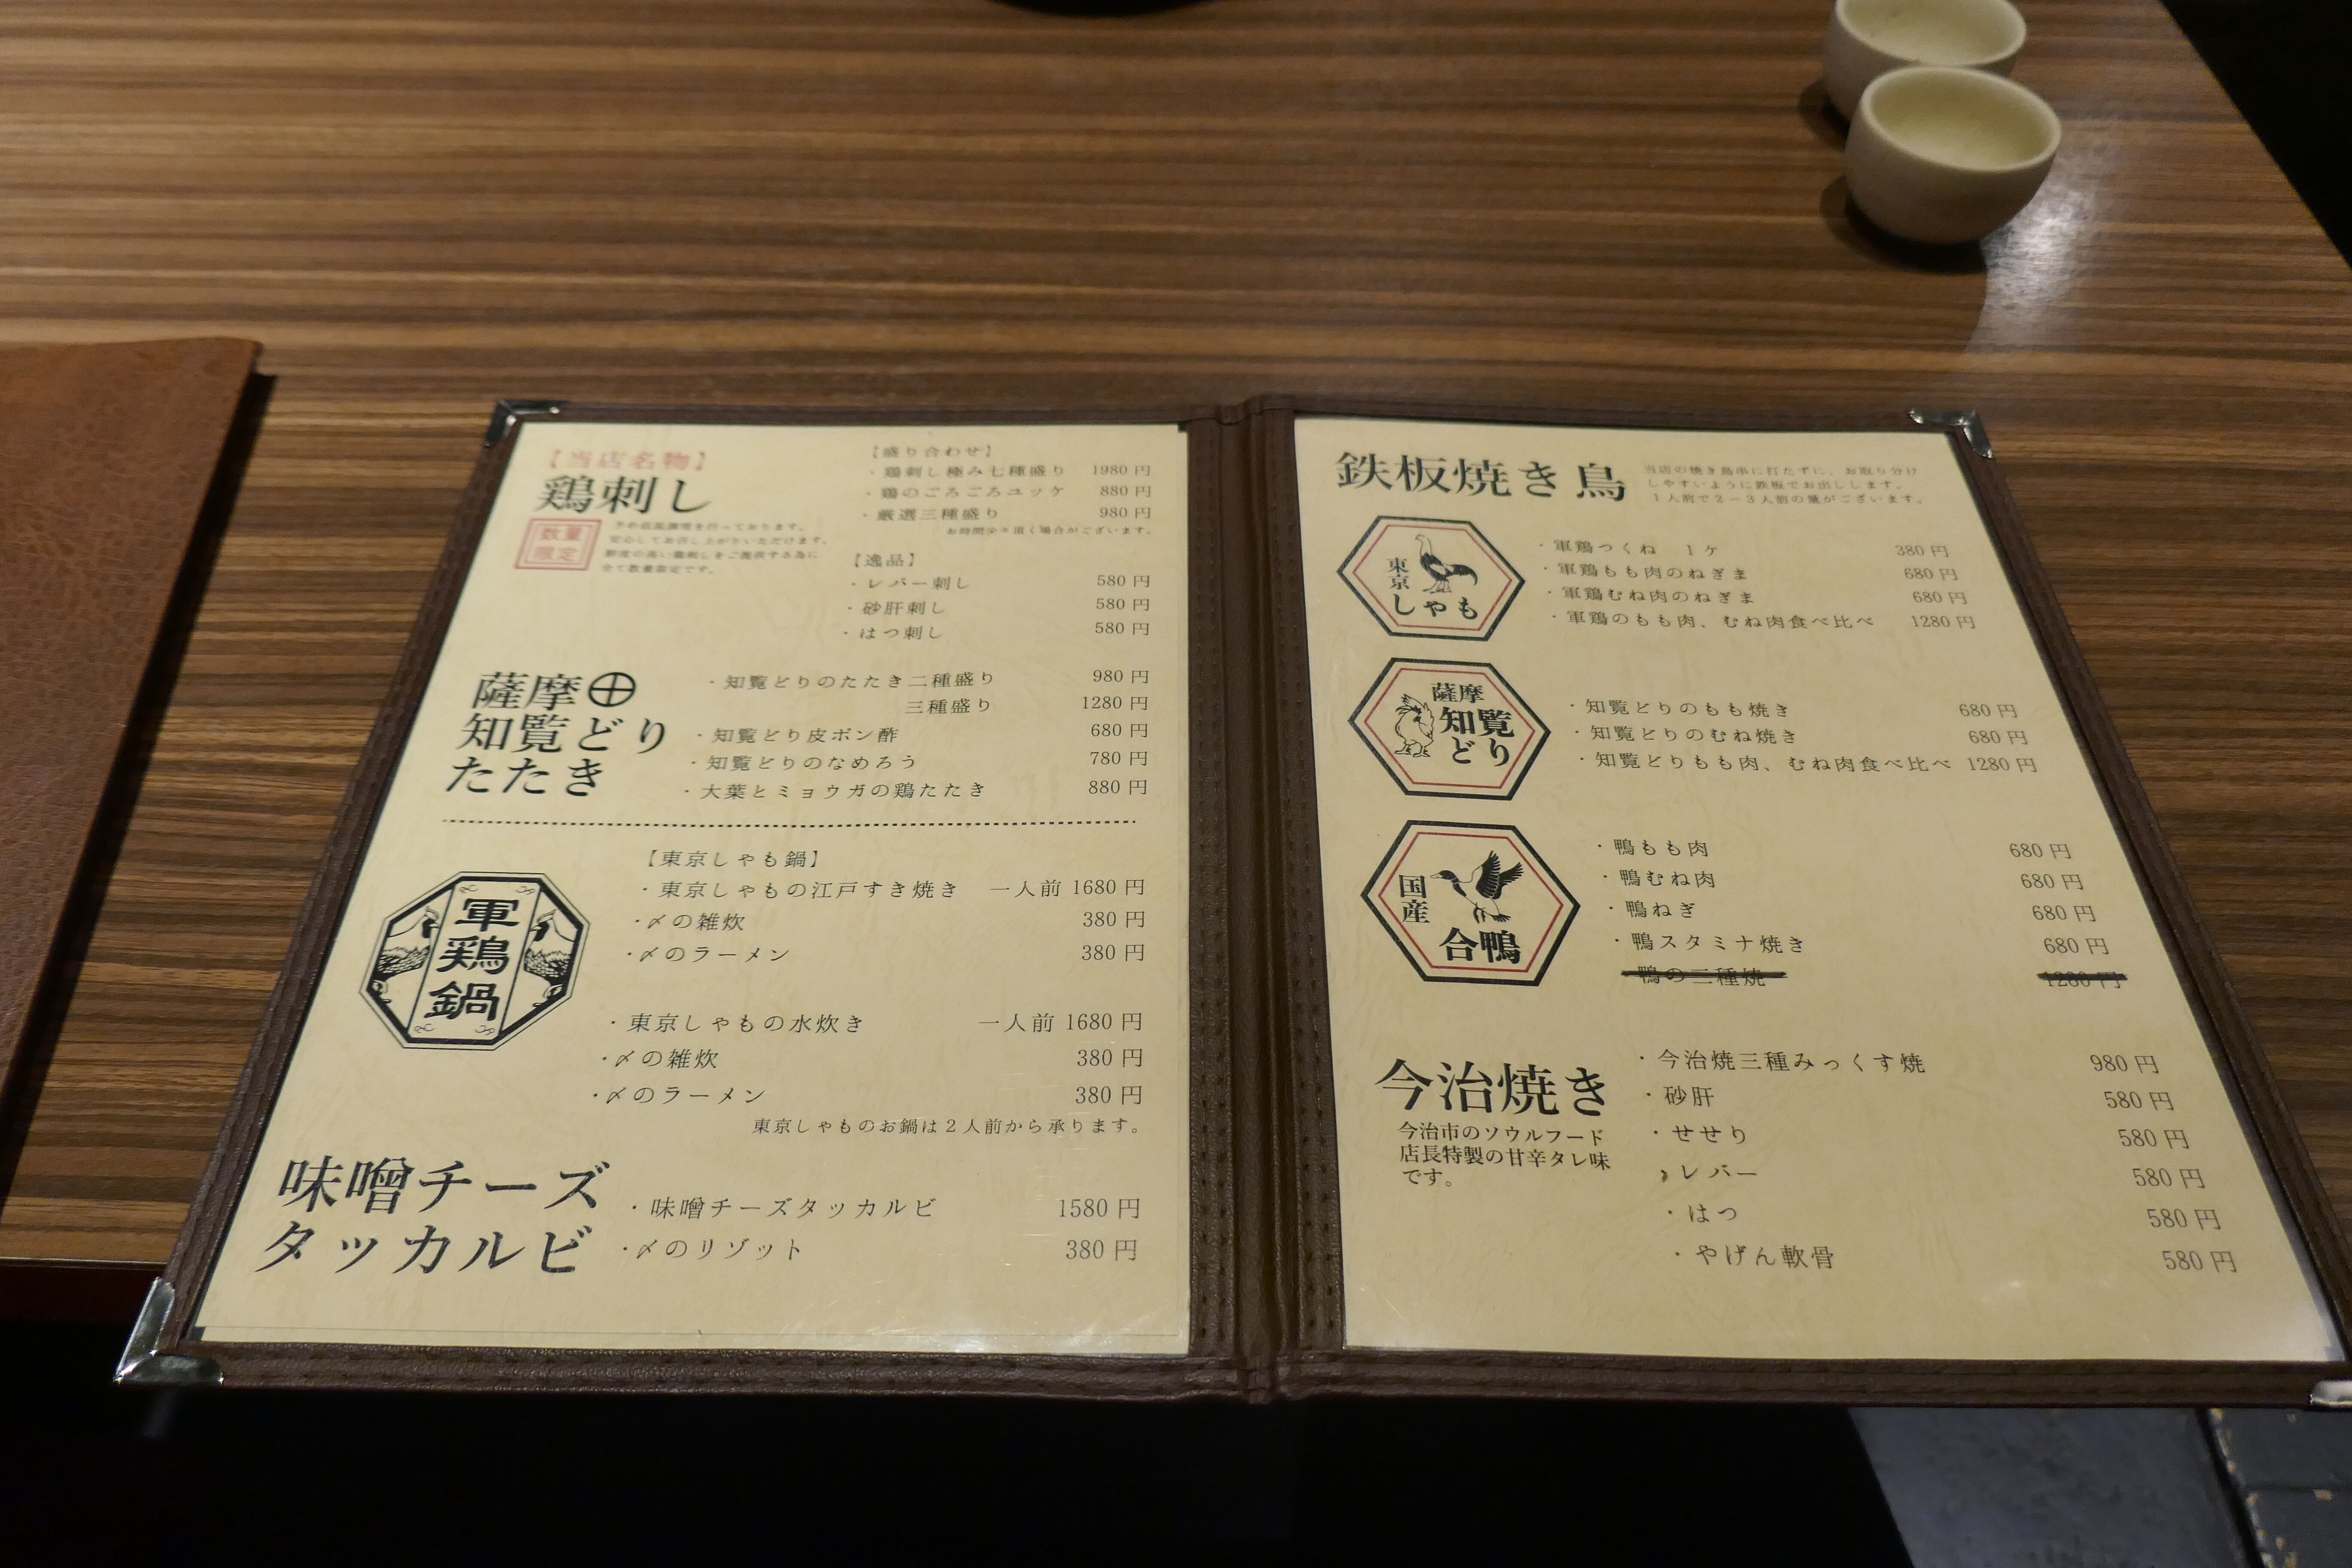 【当店名物】
鶏刺し
数量
限定
予約低温調理を行っております。
安心してお召し上がりいただけます。
鮮度の高い鶏刺しをご提供する為に
全て数量限定です。
【盛り合わせ】
・鶏刺し極み七種盛り 1980 円
・鶏のごろごろユッケ 880 円
・厳選三種盛り 980 円
お時間少々頂く場合がございます。
【逸品】
・レバー刺し 580 円
・砂肝刺し 580 円
・はつ刺し 580 円
薩摩
知覧どり
たたき
・知覧どりのたたき二種盛り 980 円
三種盛り 1280 円
・知覧どり皮ポン酢 680 円
・知覧どりのなめろう 780 円
・大葉とミョウガの鶏たたき 880 円
軍
鶏
鍋
【東京しゃも鍋】
・東京しゃもの江戸すき焼き 一人前 1680 円
・〆の雑炊 380 円
・〆のラーメン 380 円
・東京しゃもの水炊き 一人前 1680 円
・〆の雑炊 380 円
・〆のラーメン 380 円
東京しゃものお鍋は２人前から承ります。
味噌チーズ
タッカルビ
・味噌チーズタッカルビ 1580 円
・〆のリゾット 380 円
鉄板焼き鳥
当店の焼き鳥串に打たずに、お取り分け
しやすいように鉄板でお出しします。
１人前で２－３人前の量がございます。
東京
しゃも
・軍鶏つくね １ヶ 380 円
・軍鶏もも肉のねぎま 680 円
・軍鶏むね肉のねぎま 680 円
・軍鶏のもも肉、むね肉食べ比べ 1280 円
薩摩
知覧
どり
・知覧どりのもも焼き 680 円
・知覧どりのむね焼き 680 円
・知覧どりもも肉、むね肉食べ比べ 1280 円
国産
合鴨
・鴨もも肉 680 円
・鴨むね肉 680 円
・鴨ねぎ 680 円
・鴨スタミナ焼き 680 円
・鴨の二種焼 1280 円
今治焼き
今治市のソウルフード
店長特製の甘辛タレ味
です。
・今治焼三種みっくす焼 980 円
・砂肝 580 円
・せせり 580 円
・レバー 580 円
・はつ 580 円
・やげん軟骨 580 円